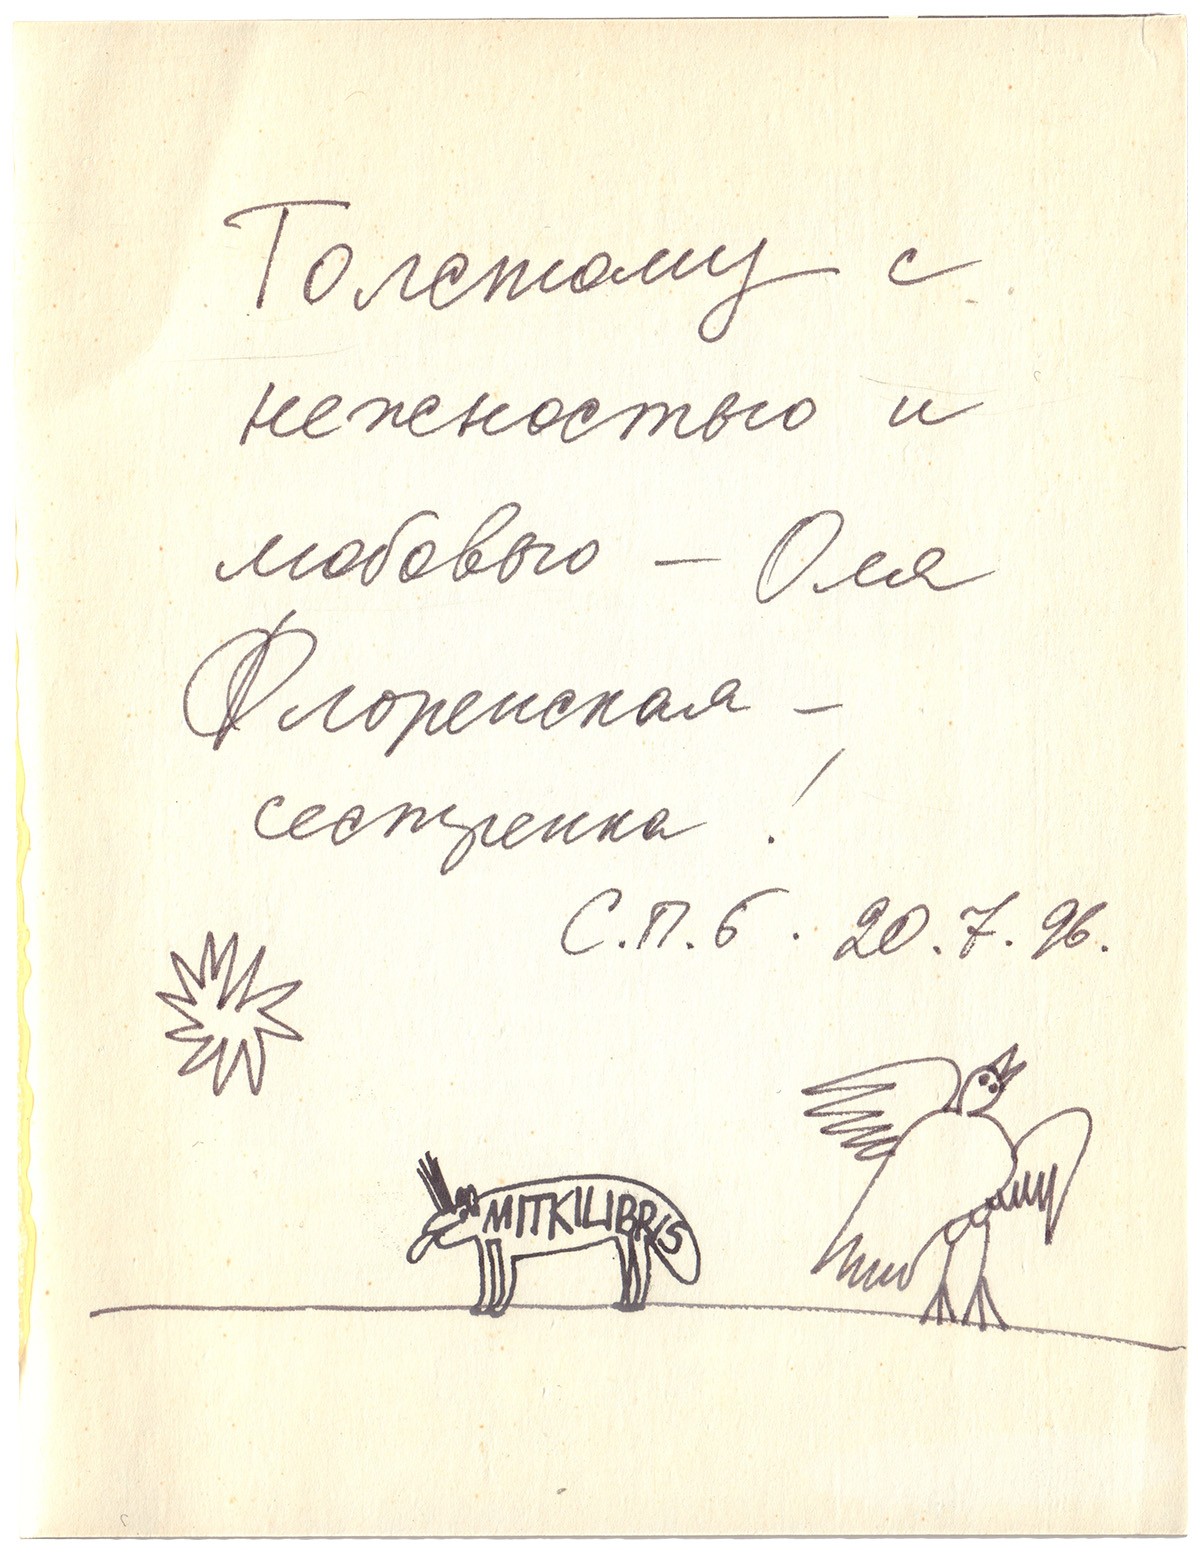 Толстому с
нежностью и
любовью – Оля
Флоренская –
сестренка!
С.П.б. 20.7.96.
MITKILIBRIS